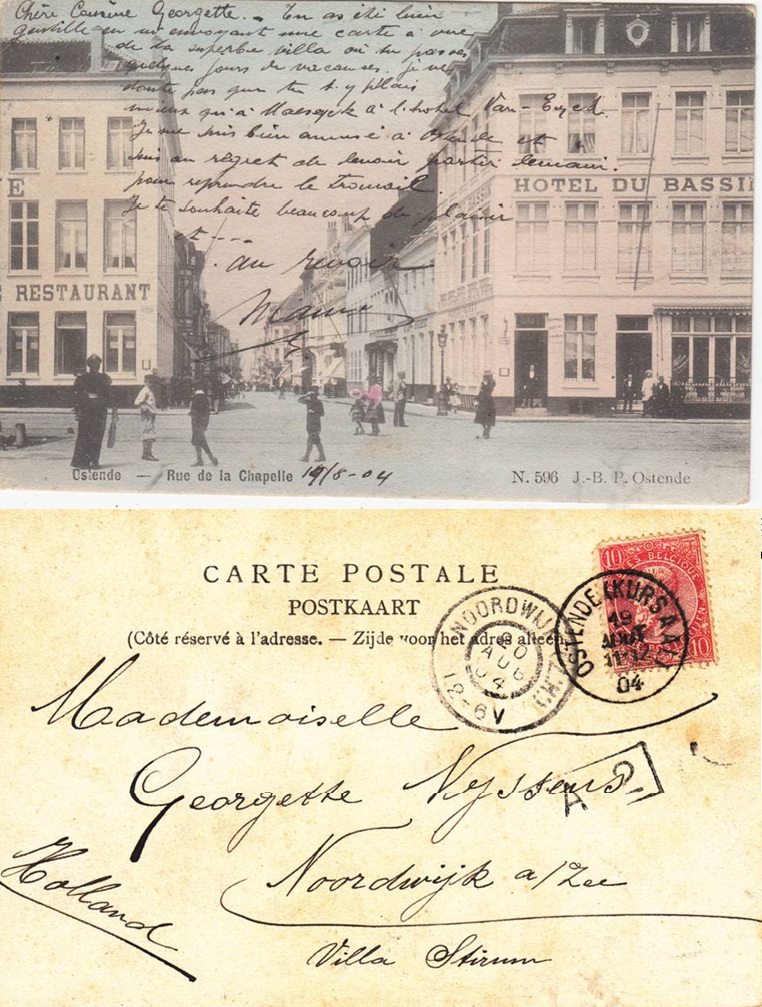 Chère Cousine Georgette. – Tu as été bien
gentille en m'envoyant une carte à vue
de la superbe villa où tu passes
quelques jours de vacances. je ne
doute pas que tu t'y plais
mieux qu'à Maeseyck à l'hotel Van-Eyck.
Je me suis bien amusé à Ostende et
suis au régret de devoir partir demain.
pour reprendre le travail.
Je te souhaite beaucoup de plaisir
et ---
au revoir
HOTEL DU BASSIN
BASSIN
E
S RESTAURANT
Ostende — Rue de la Chapelle 19/8-04
N. 596 J.-B. P. Ostende
CARTE POSTALE
POSTKAART
(Côté réservé à l'adresse. — Zijde voor het adres alleen.)
NOORDWIJK
20
AUG
04
12-6V
OSTENDE (KURSAAL)
19
AOUT
11-12
04
10 BELGIQUE
10
Mademoiselle
Georgette Nyssens.
A P
Noordwijk a/Zee
Holland
Villa Stirum